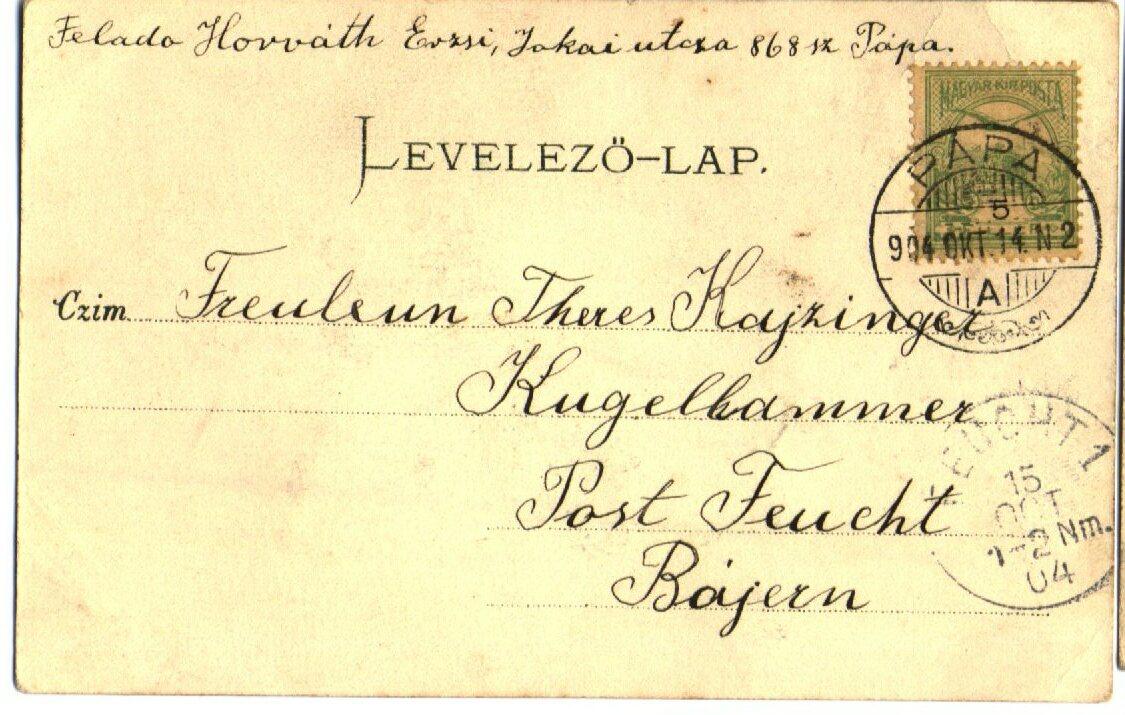 Felado Horváth Erzsi, Jokai utcza 868 sz Pápa.
MAGYAR KIR. POSTA
LEVELEZŐ-LAP.
PÁPA
5
904 OKT. 14 N 2
A
Czim Freuleun Theres Kajzinger
Kugelhammer
FEUCHT 1
15
OCT
1-2 Nm.
04
Post Feucht
Bájern